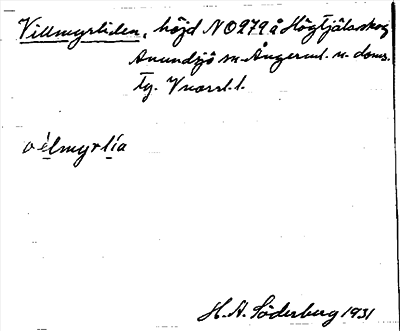 Villmyrliden, höjd NO 979 å Högtjälaskog
Anundsjö sn. Ångerml. n. doms.
tg. Vnorrl. l.
vélmyrlía
H. A. Söderberg 1931